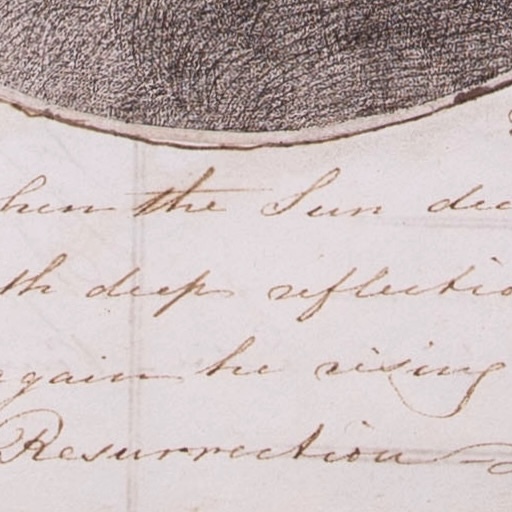 hen the Sun dec
th deep reflectio
gain he rising
Resurrection